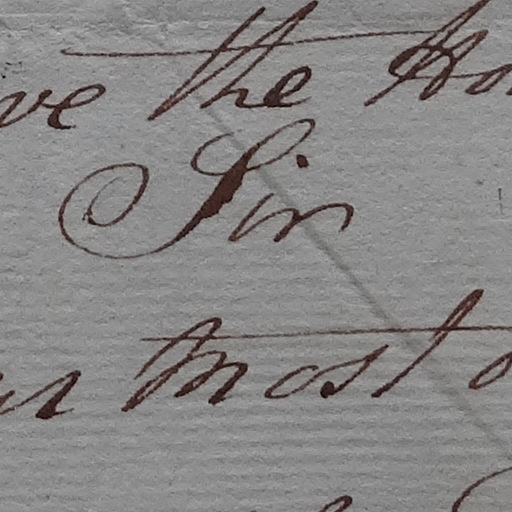 ve the Hon
Sir
ur most o